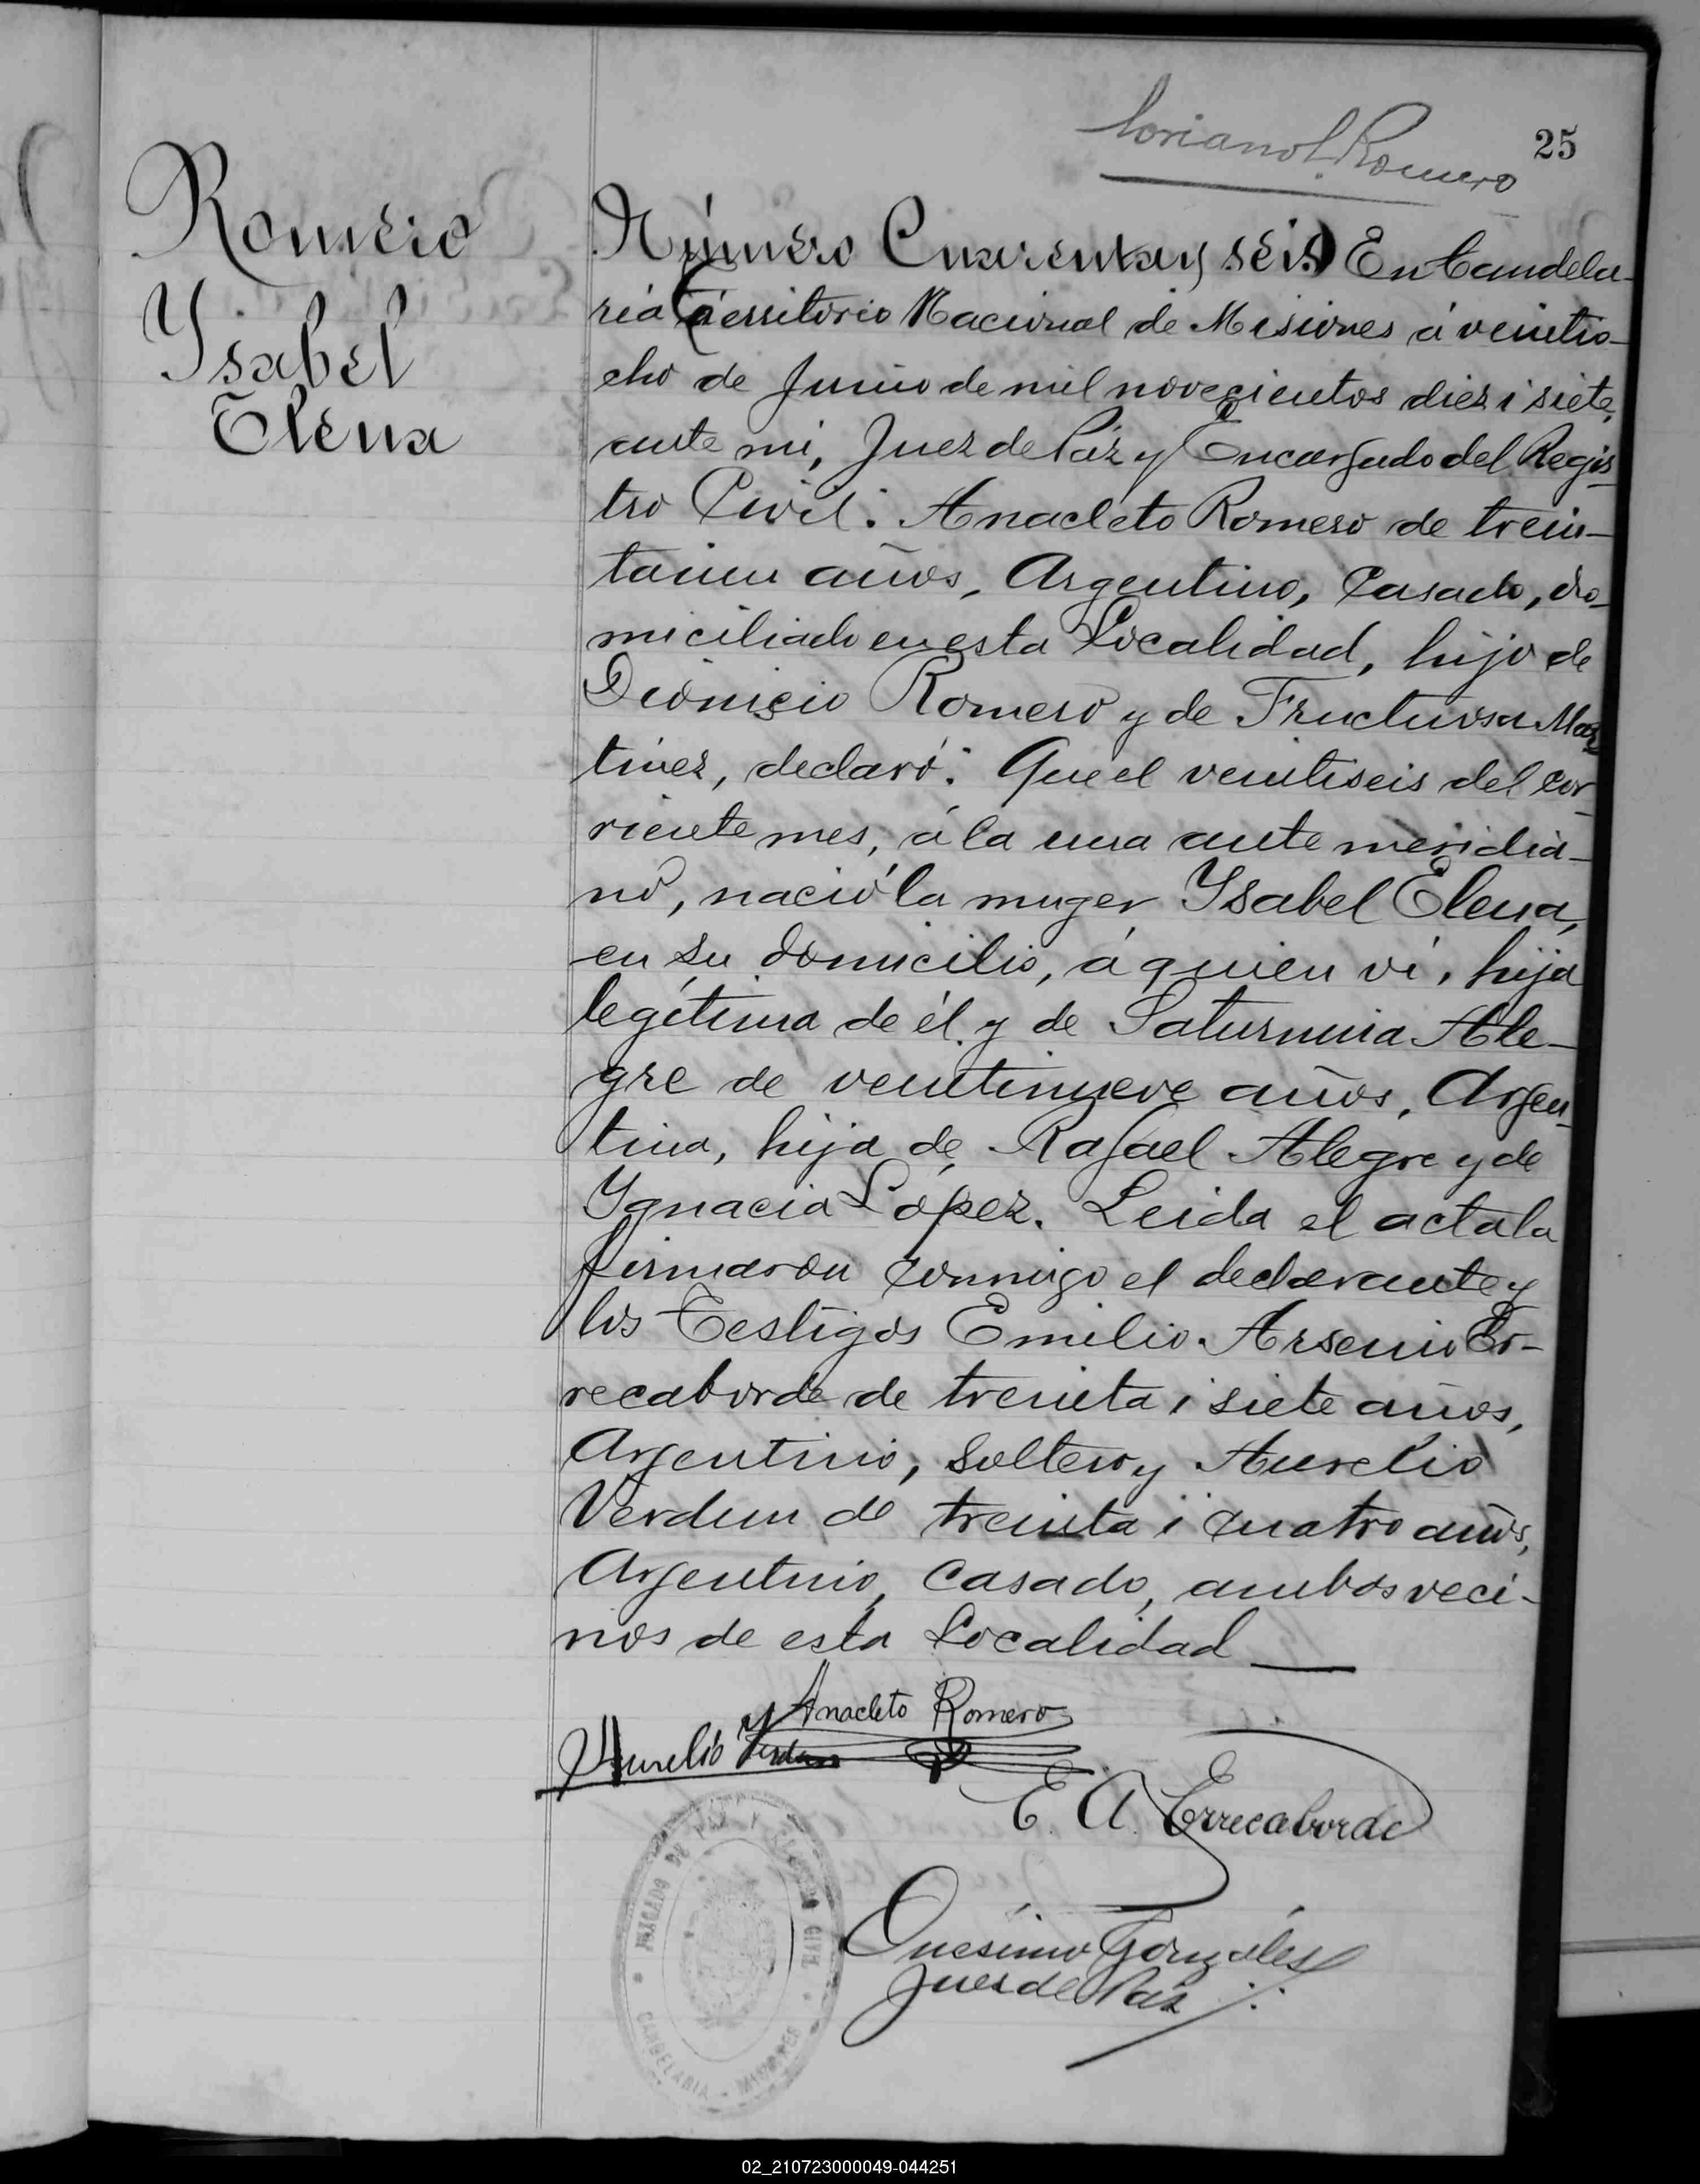 25
Romero
Ysabel
Elena
Número Cuarenta y seis) En Candela-
ria Territorio Nacional de Misiones á veintio-
cho de Junio de mil novecientos diez i siete,
ante mi, Juez de Paz y Encargado del Regis-
tro Civil: Anacleto Romero de trein-
taiun años, Argentino, Casado, do-
miciliado en esta Localidad, hijo de
Dionicio Romero y de Fructuosa Mar-
tinez, declaró: Que el veintiseis del cor-
riente mes, á la una ante meridia-
no, nació la muger Ysabel Elena,
en su domicilio, á quien ví, hija
legítima de él y de Saturnina Ale-
gre de veintinueve años, Argen-
tina, hija de Rafael Alegre y de
Ygnacia López. Leida el acta la
firmaron conmigo el declarante y
los Testigos Emilio Arsenio Er-
recaborde de treinta i siete años,
Argentino, Soltero y Aurelio
Verdun de treinta i cuatro años,
Argentino, Casado, ambos veci-
nos de esta Localidad
Anacleto Romero
Aurelio Verdun
E. A. Errecaborde
Onesimo Gonzáles
Juez de Paz
JUZGADO DE PAZ Y REGISTRO CIVIL
CANDELARIA - MISIONES
02_210723000049-044251